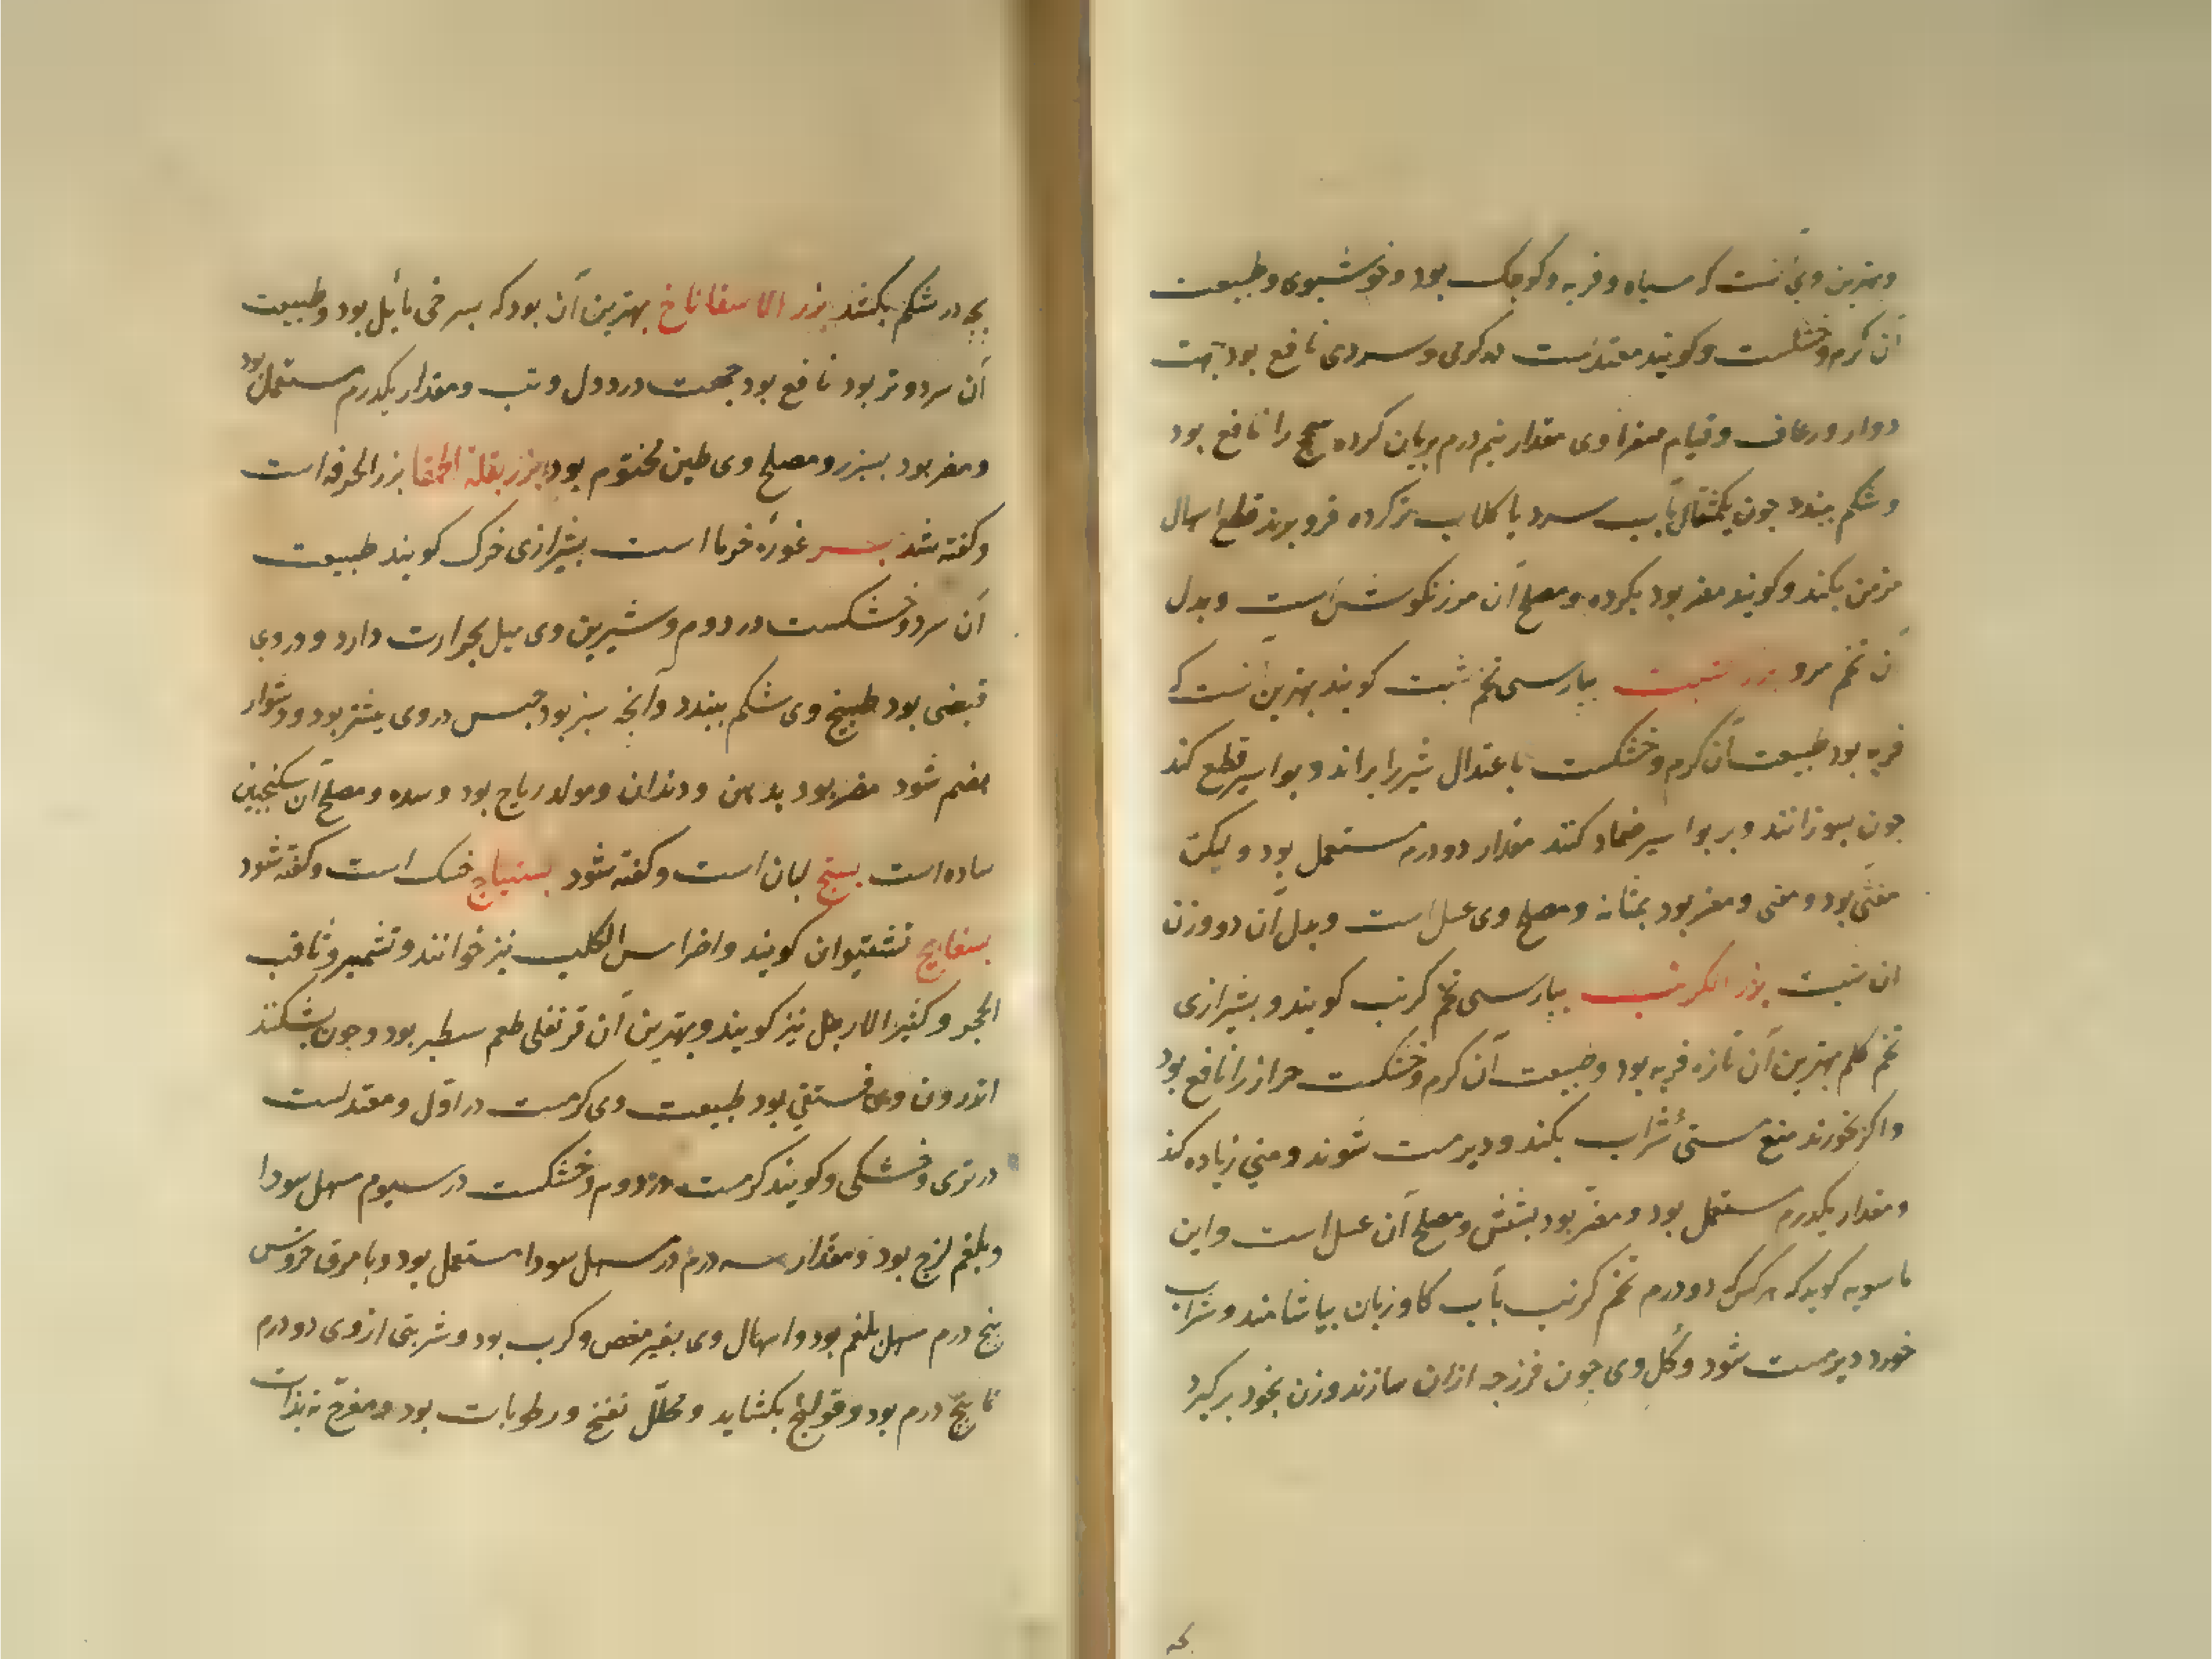 وبهترین وی آنست که سیاه و فربه و کوچک بود و خوشبوی و طبیعت
آن کرم و خشکست و کویند معتدلست در کرمی و سردی نافع بود جهت
دوار و رعاف و قیام صفراوی مقدار نیم درم بریان کرده سحج را نافع بود
و شکم ببندد چون یکمثقال بآب سرد یا کلاب تر کرده فرو برند قطع اسهال
مزمن بکند و کویند مضر بود بکرده و مصلح آن مرزنکوش است و بدل
آن تخم مرو بزر شبت بپارسی تخم شبت کویند بهترین آنست که
فربه بود طبیعت آن کرم و خشکست باعتدال شیر را براند و بواسیر قطع کند
چون بسوزانند و بر بواسیر ضماد کنند مقدار دو درم مستعمل بود و لیکن
مغثی بود و مقی و مضر بود بمثانه و مصلح وی عسل است و بدل آن دو وزن
آن شبت بزر الکرنب بپارسی تخم کرنب کویند و بشیرازی
تخم کلم بهترین آن تازه فربه بود و طبیعت آن کرم و خشکست حزاز را نافع بود
و اکر بخورند منع مستئ شراب بکند و دیر مست شوند و منی زیاده کند
و مقدار یکدرم مستعمل بود و مضر بود بشش و مصلح آن عسل است و ابن
ماسویه کوید که هر کس که دو درم تخم کرنب بآب کاوزبان بیاشامند و شراب
خورد دیر مست شود و کل وی چون فرزجه ازان سازند و زن بخود برکیرد
بچه
بچه در شکم بکشد بزر الاسفاناخ بهترین آن بود که بسرخی مایل بود و طبیعت
آن سرد و تر بود نافع بود جهت درد دل و تب و مقدار یکدرم مستعمل بود
و مضر بود بسپرز و مصلح وی طین مختوم بود بزر بقلة الحمقا بزر الخرفه است
و کفته شد بسر غورهٔ خرما است بشیرازی خرک کویند طبیعت
آن سرد و خشکست در دوم و شیرین وی میل بحرارت دارد و در وی
قبضی بود طبیخ وی شکم ببندد و آنچه سبز بود حبس در وی بیشتر بود و دشوار
هضم شود مضر بود بدهن و دندان و مولد ریاح بود و سده و مصلح آن سکنجبین
ساده است بستج لبان است و کفته شود بستیاج خسک است و کفته شود
بسفایج تشتیوان کویند و اضراس الکلب نیز خوانند و تشمیر و ثاقب
الحجر و کثیر الارجل نیز کویند و بهترین آن قرنفلی طعم سطبر بود و چون بشکنند
اندرون وی فستقی بود طبیعت وی کرمست در اول و معتدلست
در تری و خشکی و کویند کرمست در دوم و خشکست در سیوم مسهل سودا
و بلغم لزج بود و مقدار سه درم در مسهل سودا مستعمل بود و با مرق خروس
پنج درم مسهل بلغم بود و اسهال وی بغیر مغص و کرب بود و شربتی از وی دو درم
تا پنج درم بود و قولنج بکشاید و محلل نفخ و رطوبات بود و مفرح نه بذات